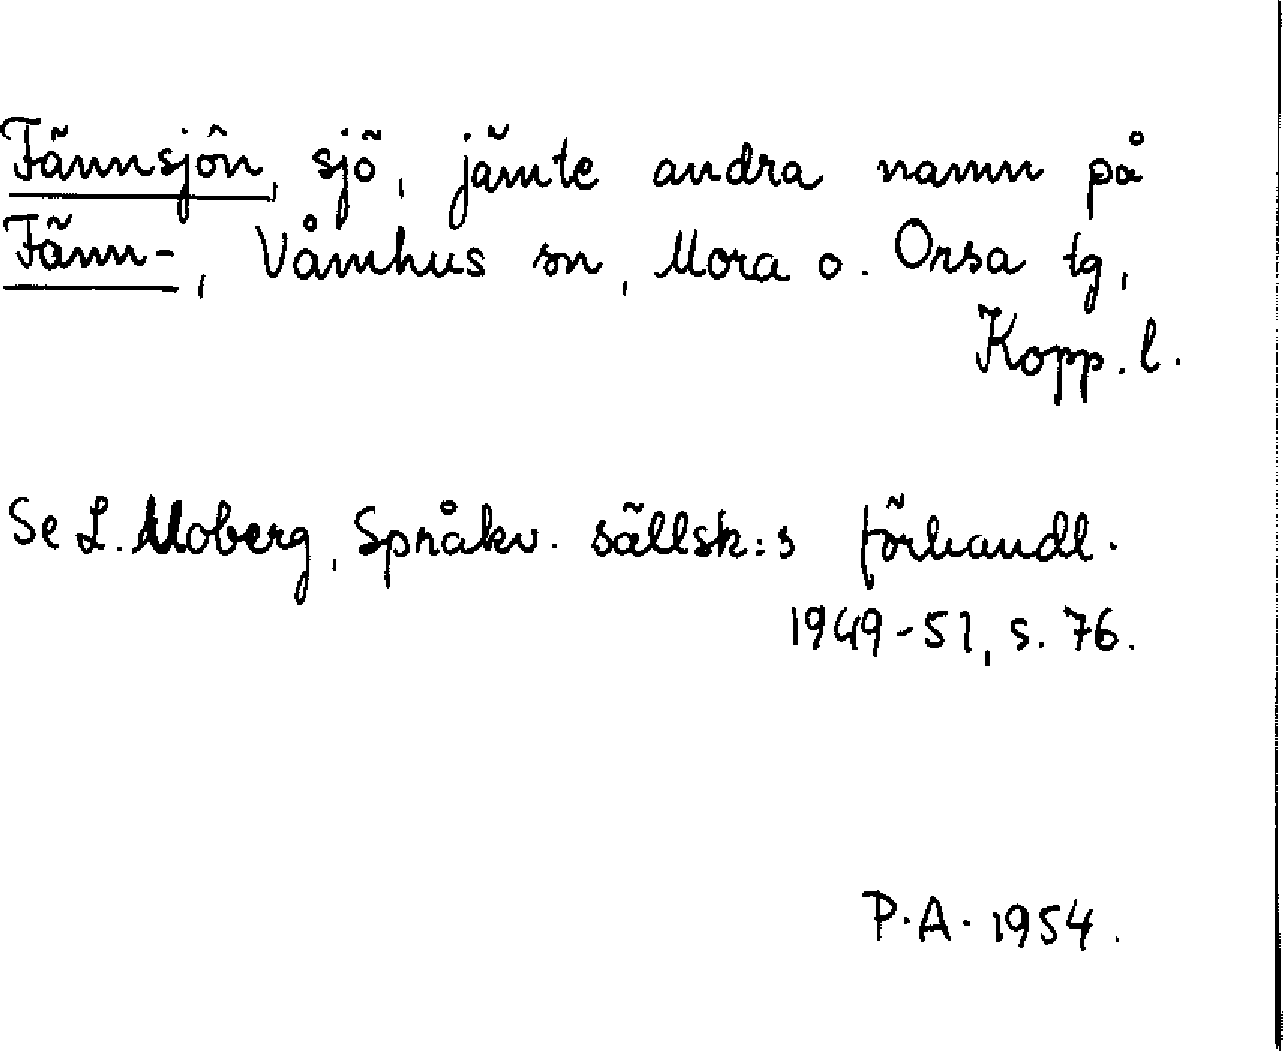 Fännsjön, sjö, jämte andra namn på
Fänn-, Våmhus sn, Mora o. Orsa tg,
Kopp. l.
Se L. Moberg, Språkv. sällsk:s förhandl.
1949-51, s. 76.
P.A. 1954.